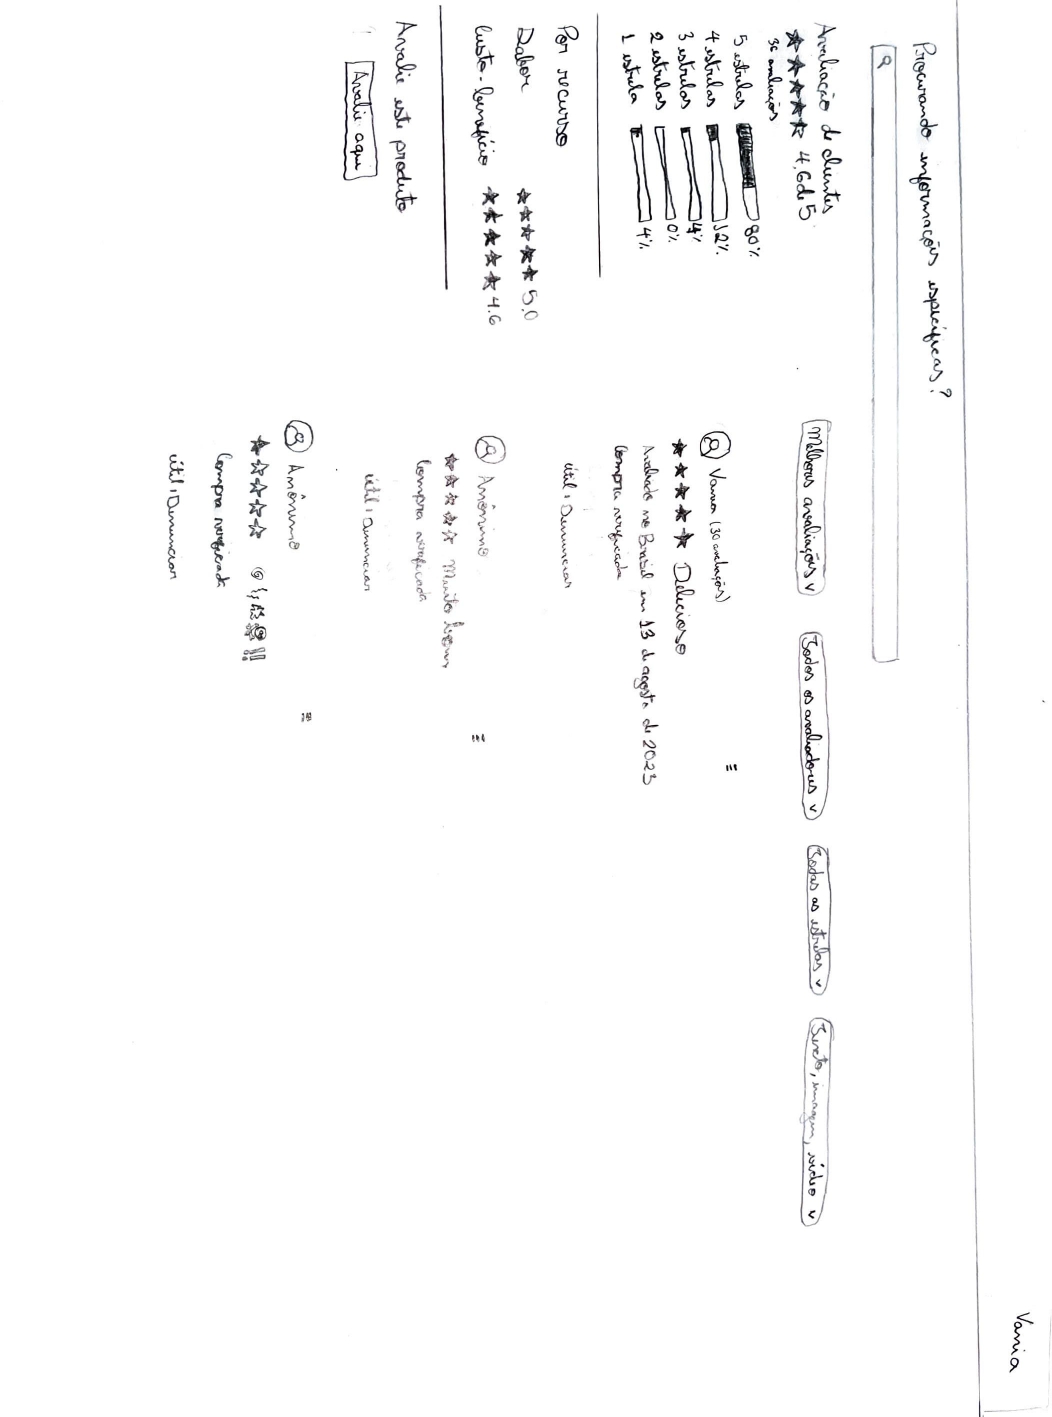 Vania
Procurando informações específicas?
Avaliação de clientes
4,6 de 5
36 avaliações
5 estrelas 80%
4 estrelas 12%
3 estrelas 4%
2 estrelas 0%
1 estrela 4%
Por recurso
Sabor 5,0
Custo-benefício 4.6
Avalie este produto
Avalie aqui
Melhores avaliações
Todos os avaliadores
Todas as estrelas
Texto, imagem, vídeo
Vania (30 avaliações)
Delicioso
Avaliado no Brasil em 13 de agosto de 2023
Compra verificada
útil | Denunciar
Anônimo
Muito bom
Compra verificada
útil | Denunciar
Anônimo
Compra verificada
útil | Denunciar